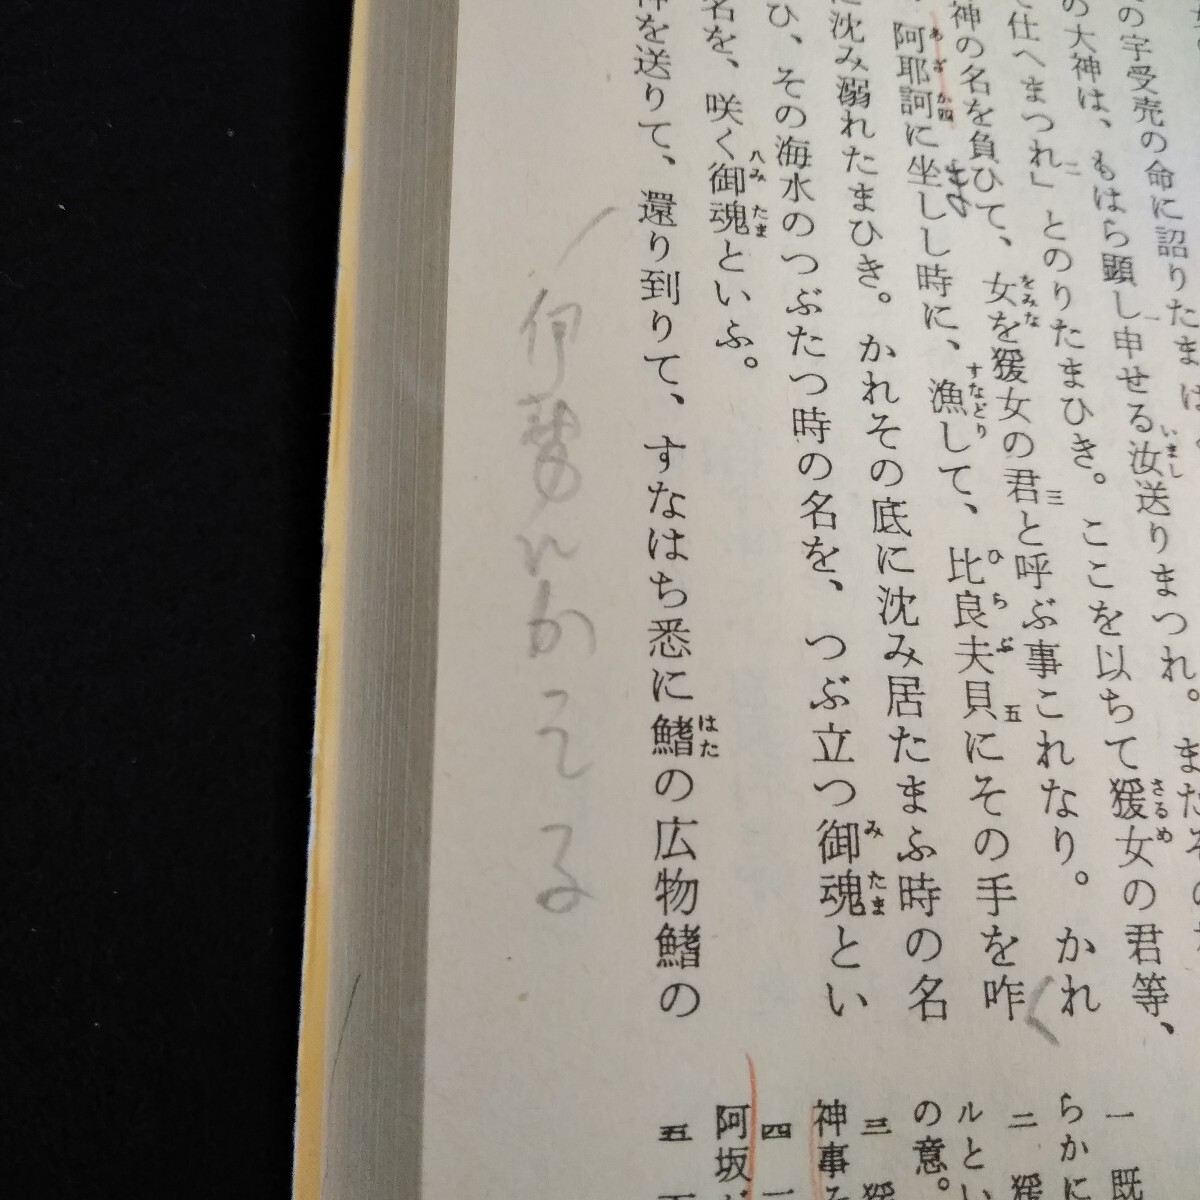 の宇受売の命に詔りたまは
の大神は、もはら顕し申せる汝送りまつれ。またその
仕へまつれ」とのりたまひき。ここを以ちて猨女の君等、
神の名を負ひて、女を猨女の君と呼ぶ事これなり。かれ
阿耶訶に坐しし時に、漁して、比良夫貝にその手を咋
に沈み溺れたまひき。かれその底に沈み居たまふ時の名
ひ、その海水のつぶたつ時の名を、つぶ立つ御魂とい
名を、咲く御魂といふ。
を送りて、還り到りて、すなはち悉に鰭の広物鰭の
伊勢にかえる
一 既
らかに
二 猨
ルとい
の意。
三 猨
神事
四
阿坂
五